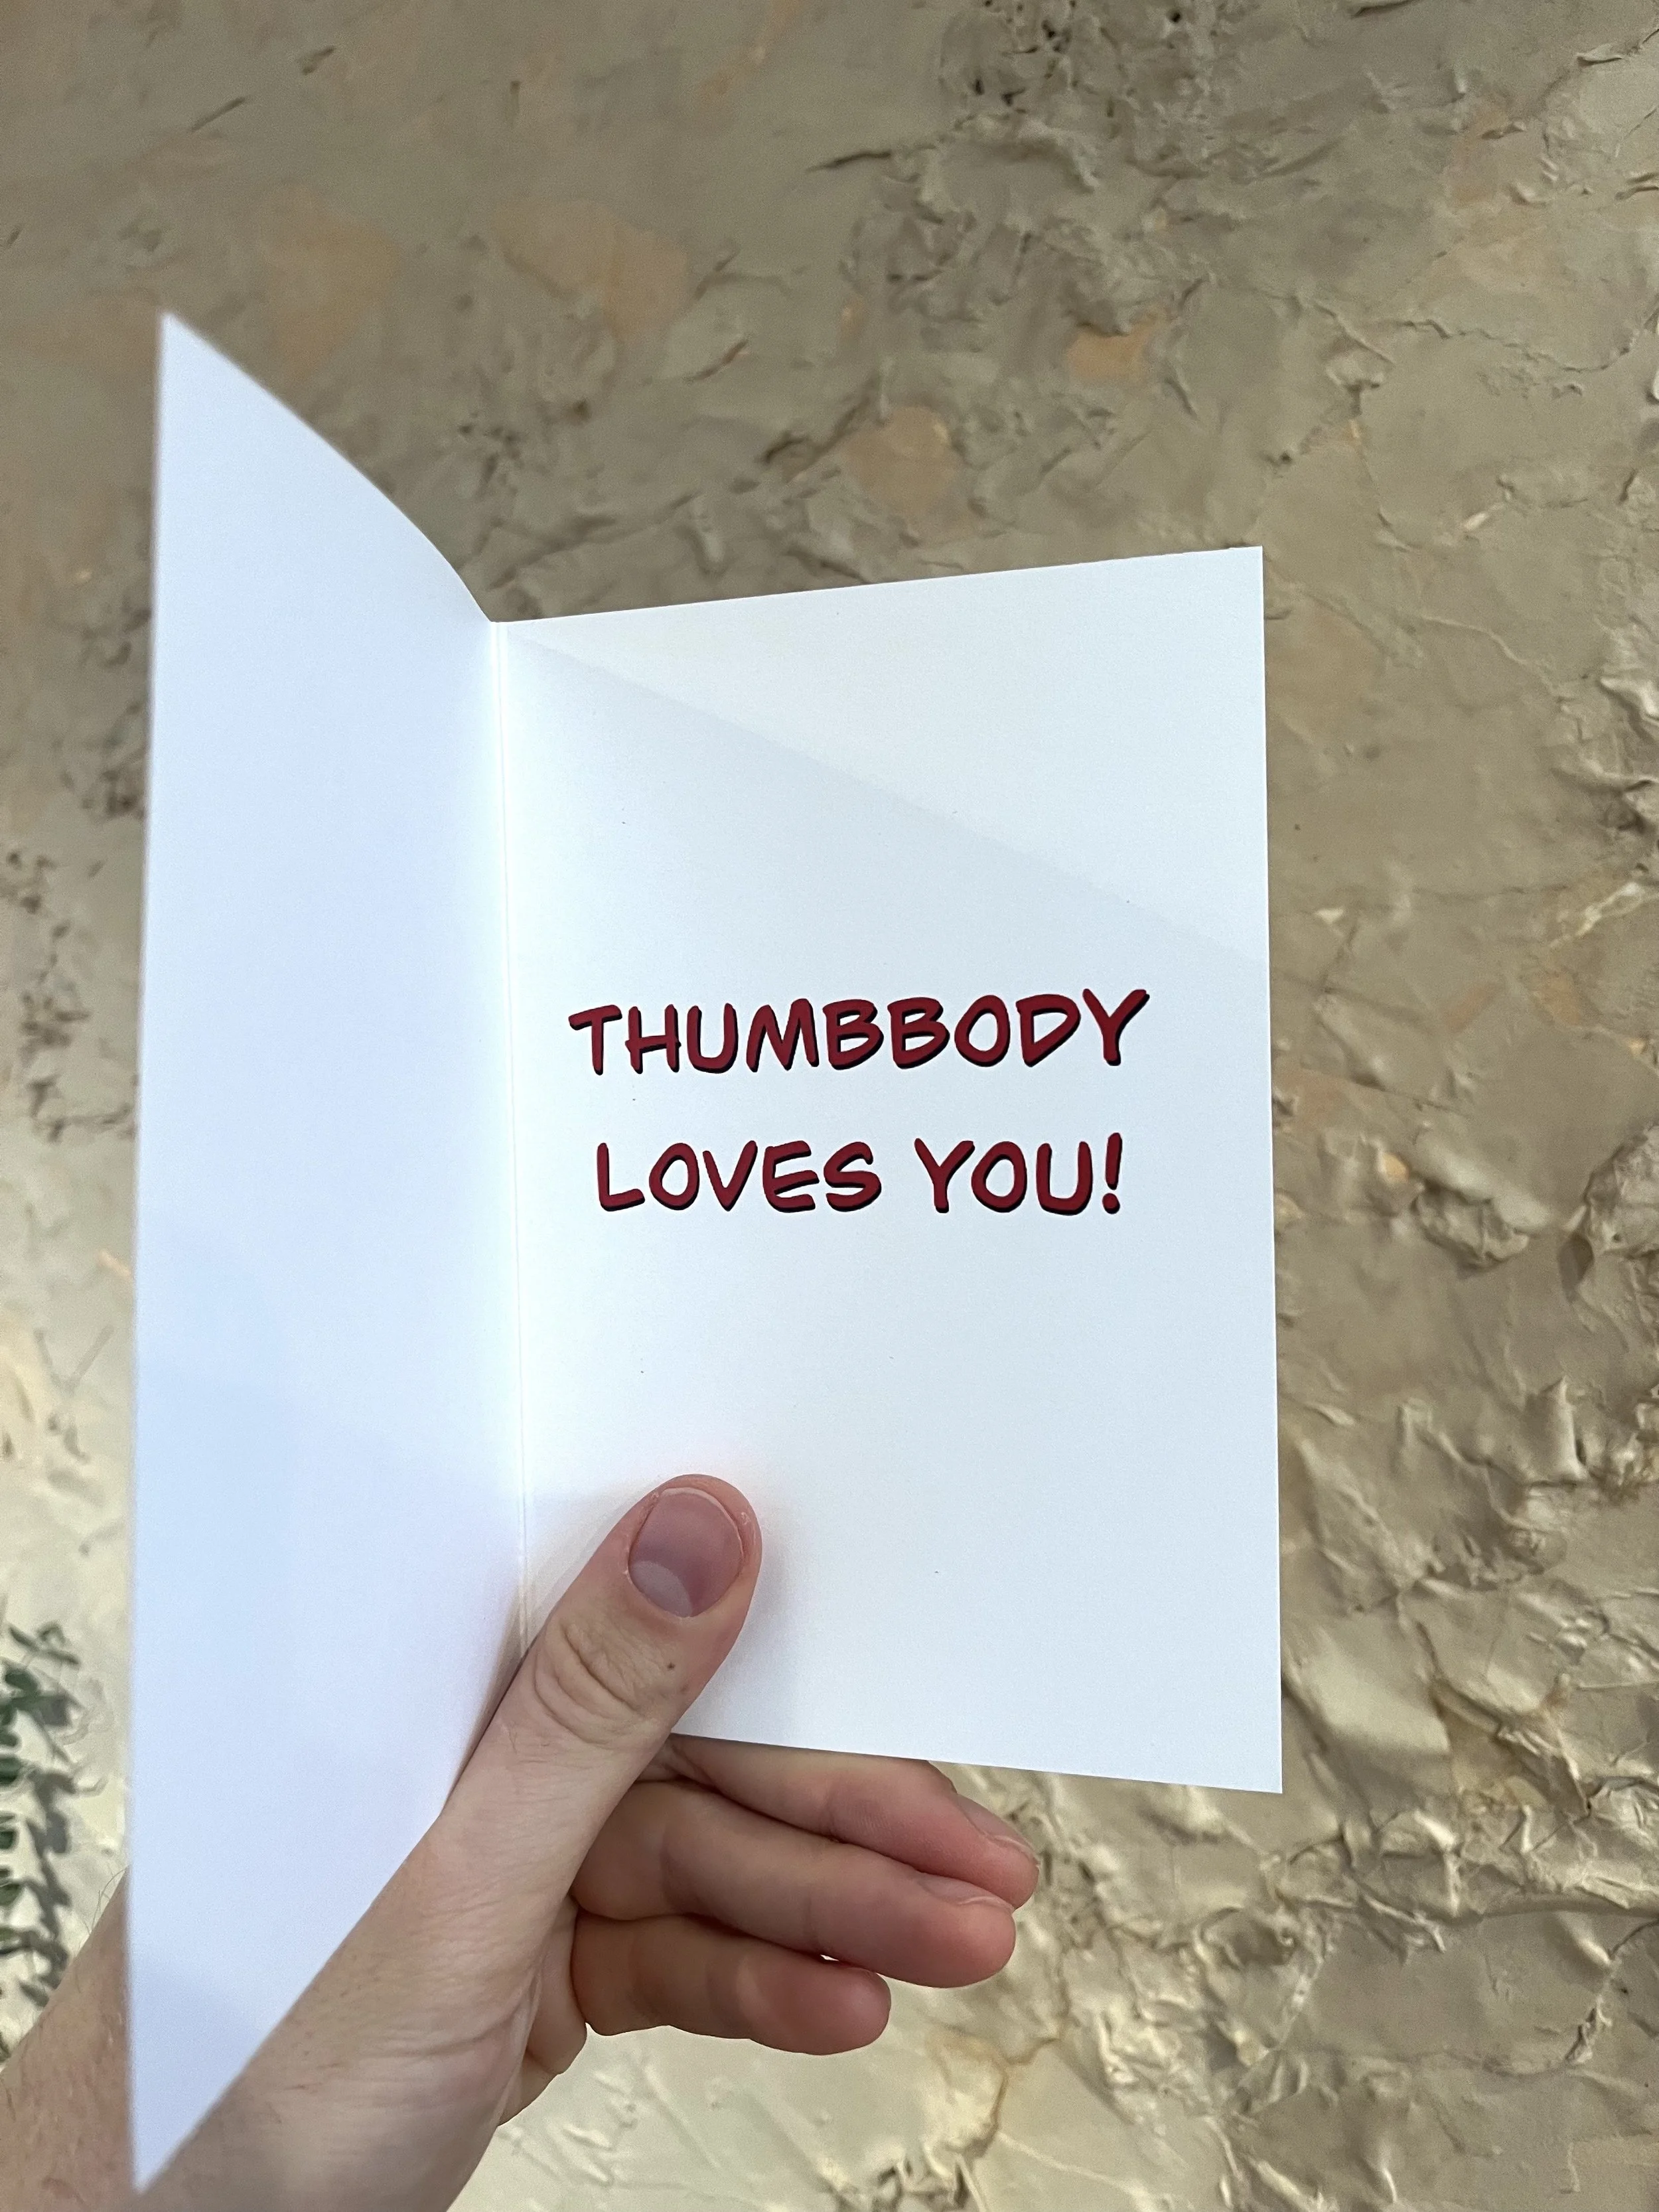 THUMBBODY
LOVES YOU!